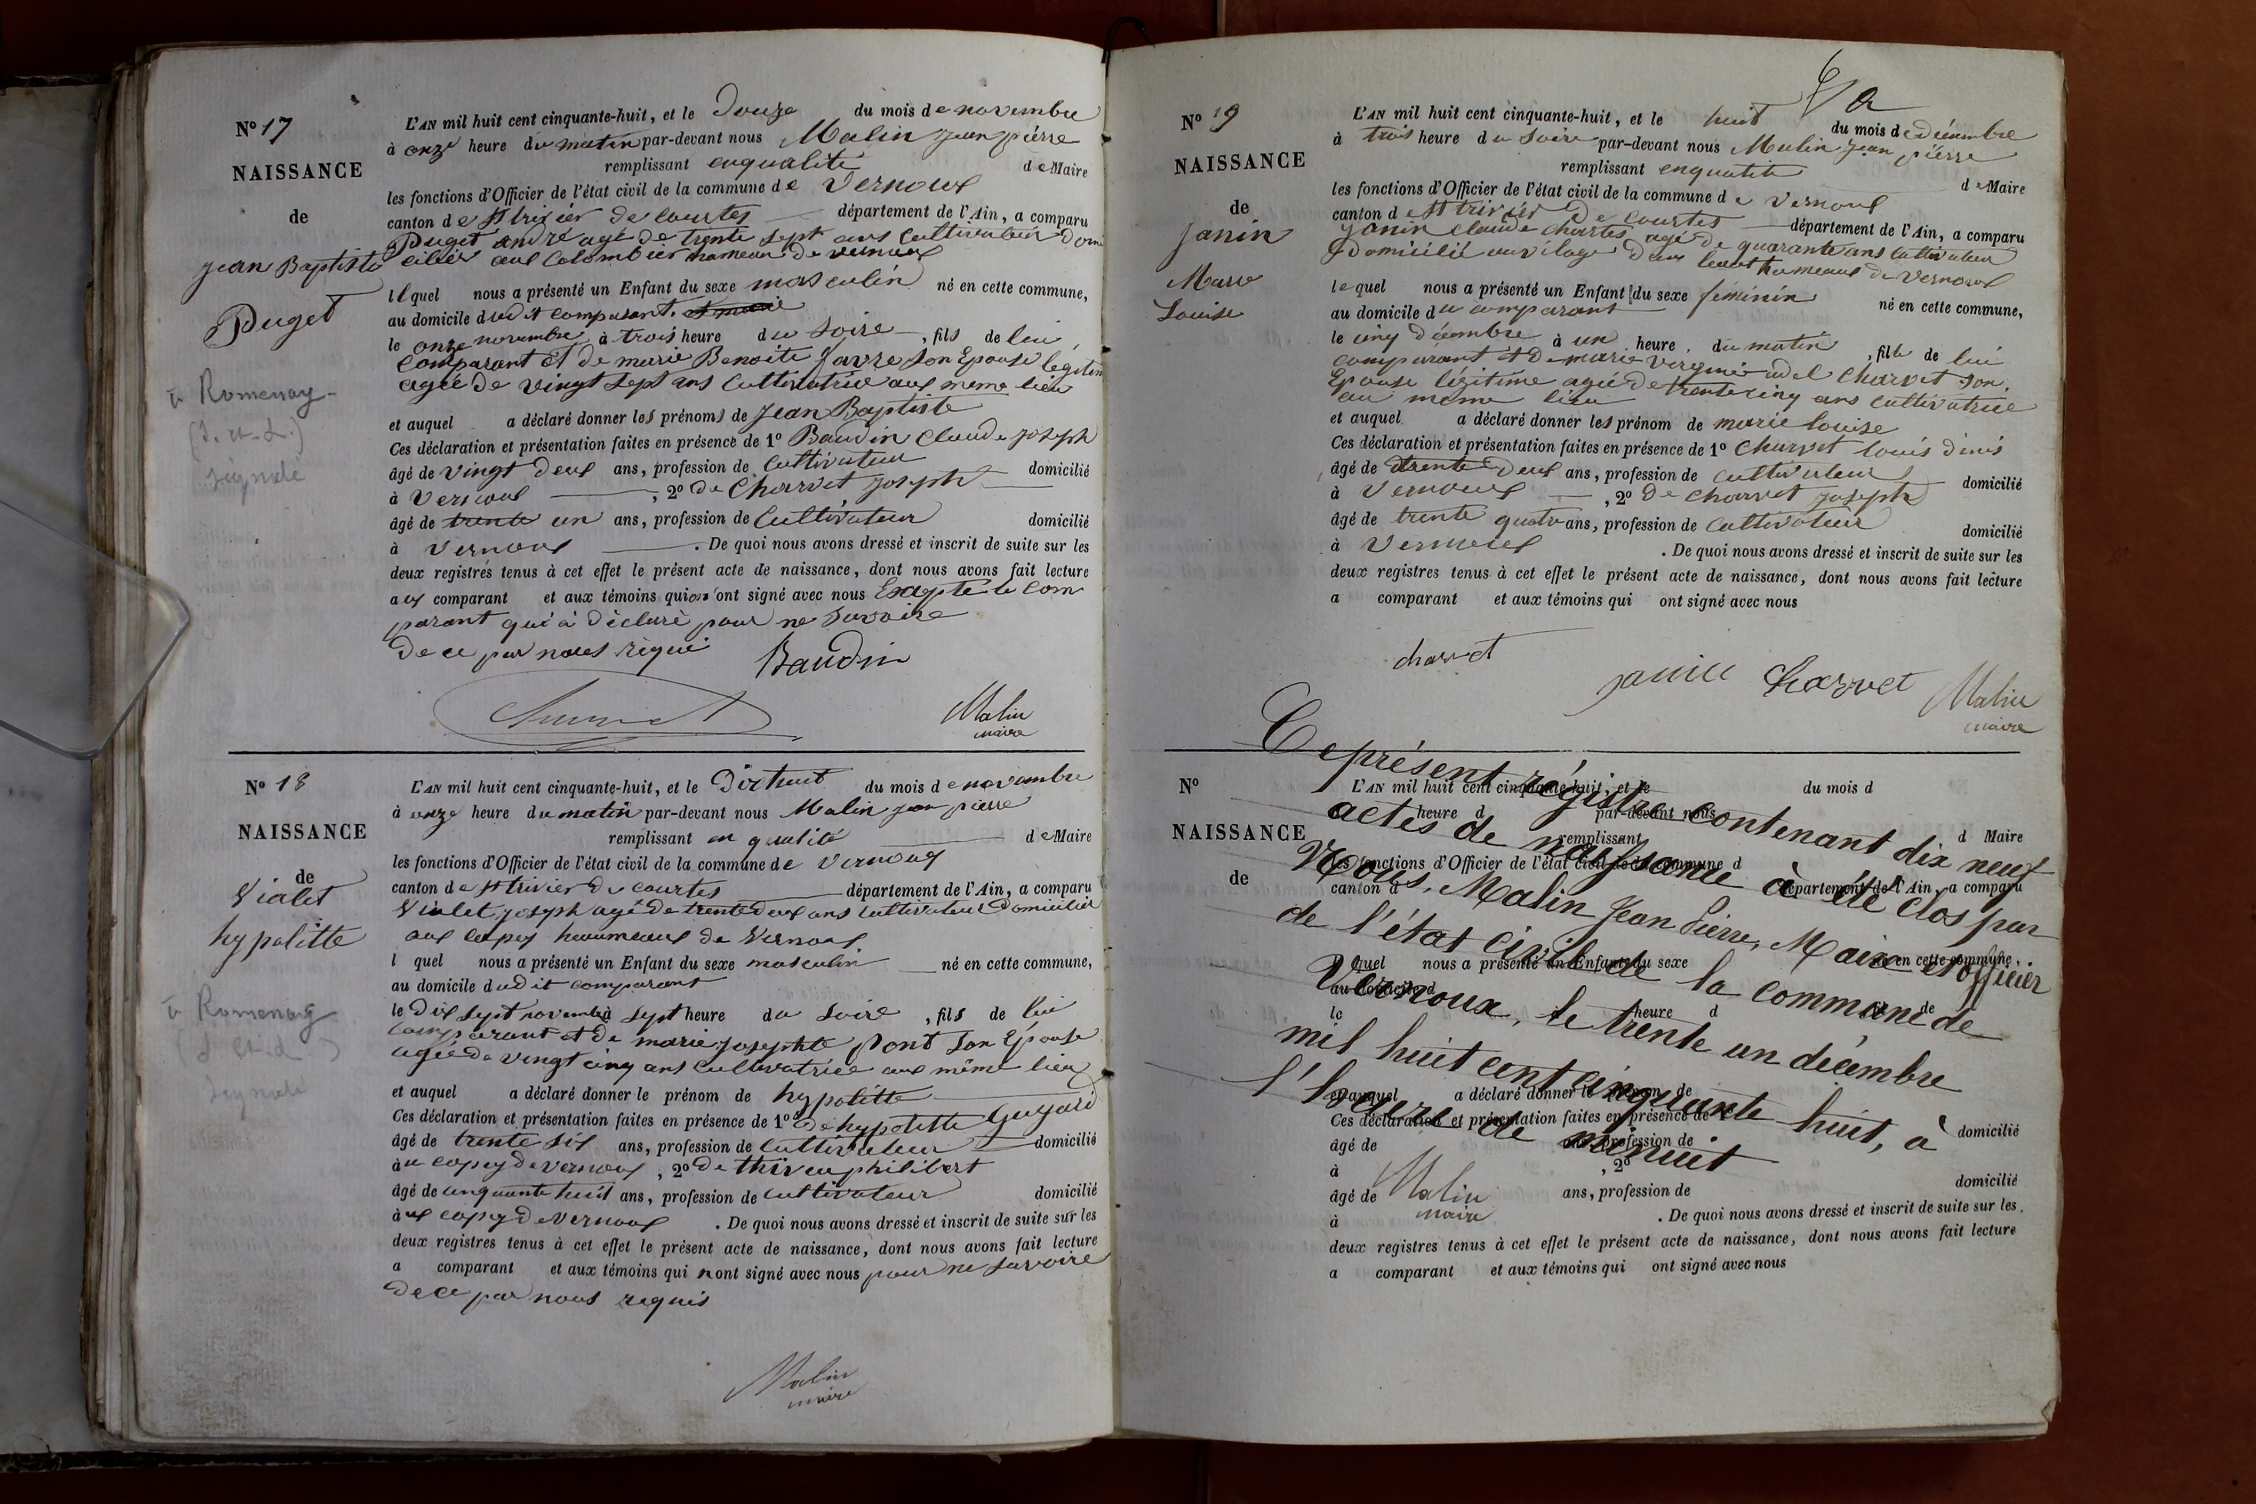 N° 17
NAISSANCE
de
jean Baptiste
Puget
Romenay
signalé
L'AN mil huit cent cinquante-huit, et le Douze du mois de novembre
à onze heure du matin par-devant nous Malin jean pierre
remplissant enqualité de Maire
les fonctions d'Officier de l'état civil de la commune de Vernoux
canton de st trivier de courtes département de l'Ain, a comparu
Puget andré agé de trente sept ans Cultivateur domi
cilié aux Colombier hameau de vernoux
lequel nous a présenté un Enfant du sexe masculin né en cette commune,
au domicile dudit comparant.
le onze novembre à trois heure du Soire, fils de lui
comparant et de marie Benoite favre son Epouse légitim
agée de vingt sept ans Cultivatrice aux meme lieu
et auquel a déclaré donner les prénoms de Jean Baptiste
Ces déclaration et présentation faites en présence de 1° Baudin Claude joseph
âgé de vingt deux ans, profession de Cultivateur domicilié
à Vernoux, 2° de Charvet joseph
âgé de trente un ans, profession de Cultivateur domicilié
à Vernoux. De quoi nous avons dressé et inscrit de suite sur les
deux registrés tenus à cet effet le présent acte de naissance, dont nous avons fait lecture
aux comparant et aux témoins qui ont signé avec nous Exapté le com
parant qui à déclaré pour ne Savoire
de ce par nous réqui
Baudin
Malin
maire
N° 18
NAISSANCE
de
Vialet
hypolitte
Romenay
signalé
L'AN mil huit cent cinquante-huit, et le Dixhuit du mois de novembre
à onze heure du matin par-devant nous Malin jean pierre
remplissant en qualité de Maire
les fonctions d'Officier de l'état civil de la commune de Vernoux
canton de st trivier de courtes département de l'Ain, a comparu
Vialet joseph agé de trente deux ans cultivateur Domicilié
aux copey haumeaux de Vernoux
l quel nous a présenté un Enfant du sexe masculin né en cette commune,
au domicile dudit comparant
le Dix sept novembre à sept heure du Soire, fils de lui
comparant et de marie josephte Pont Son Épouse
agée de vingt cinq ans Cultivatrice aux même lieu
et auquel a déclaré donner le prénom de hypolitte
Ces déclaration et présentation faites en présence de 1° de hypolitte Guyard
âgé de trente six ans, profession de Cultivateur domicilié
au copey de vernoux, 2° de philibert
âgé de cinquante huit ans, profession de Cultivateur domicilié
aux copey de Vernoux. De quoi nous avons dressé et inscrit de suite sur les
deux registres tenus à cet effet le présent acte de naissance, dont nous avons fait lecture
a comparant et aux témoins qui nont signé avec nous pour ne Savoire
de ce par nous requis
Malin
maire
N° 19
NAISSANCE
de
Janin
Marie
Louise
L'AN mil huit cent cinquante-huit, et le huit du mois de décembre
à trois heure du Soire par-devant nous Malin jean pierre
remplissant enqualité de Maire
les fonctions d'Officier de l'état civil de la commune de Vernoux
canton de st trivier de courtes département de l'Ain, a comparu
Janin Claude Charles agé de quarante ans Cultivateur
Domicilié hameaux de Vernoux
lequel nous a présenté un Enfant du sexe féminin né en cette commune,
au domicile du comparant
le cinq décembre à un heure du matin, fille de lui
comparant et de marie Virginie Charvet son
Epouse légitime agée de trente cinq ans cultivatrice
au même lieu
et auquel a déclaré donner les prénom de marie louise
Ces déclaration et présentation faites en présence de 1° Charvet louis dinis
âgé de trente deux ans, profession de cultivateur domicilié
à Vernoux, 2° de Charvet joseph
âgé de trente quatre ans, profession de Cultivateur domicilié
à Vernoux. De quoi nous avons dressé et inscrit de suite sur les
deux registres tenus à cet effet le présent acte de naissance, dont nous avons fait lecture
a comparant et aux témoins qui ont signé avec nous
charvet
janin Charvet
Malin
maire
N°
NAISSANCE
de
L'AN mil huit cent cinquante-huit, et le du mois d
heure d par-devant nous
remplissant d Maire
les fonctions d'Officier de l'état civil de la commune d
canton d département de l'Ain, a comparu
l quel nous a présenté un Enfant du sexe né en cette commune,
au domicile d
le heure d fil de
et auquel a déclaré donner le prénom de
Ces déclaration et présentation faites en présence de 1°
âgé de ans, profession de domicilié
à , 2°
âgé de ans, profession de domicilié
à . De quoi nous avons dressé et inscrit de suite sur les
deux registres tenus à cet effet le présent acte de naissance, dont nous avons fait lecture
a comparant et aux témoins qui ont signé avec nous
Ce présent régistre contenant dix neuf
actes de naissance à été clos par
Nous, Malin Jean Pierre, Maire et officier
de l'état civil de la commune de
Vernoux, le trente un décembre
mil huit cent cinquante huit, à
l'heure de minuit
Malin
maire